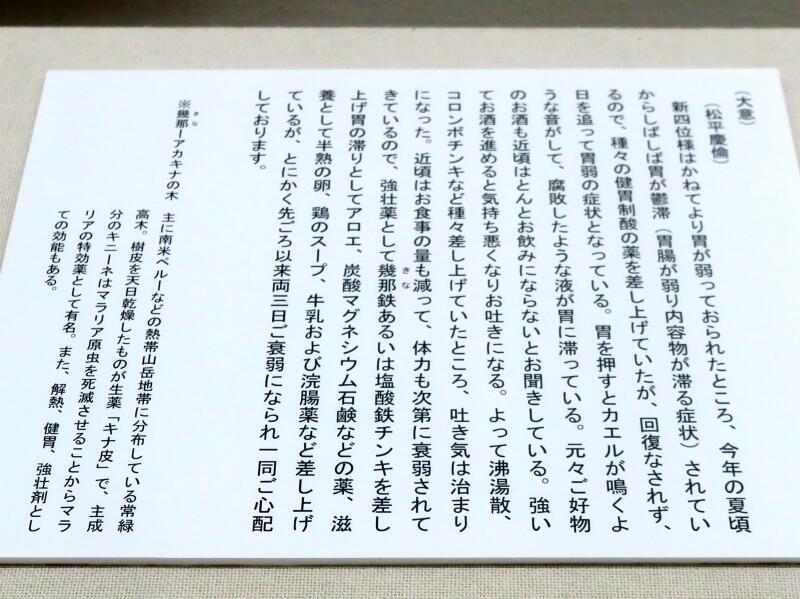 (大意)
(松平慶倫)
新四位様はかねてより胃が弱っておられたところ、今年の夏頃
からしばしば胃が鬱滞(胃腸が弱り内容物が滞る症状)されてい
るので、種々の健胃制酸の薬を差し上げていたが、回復なされず、
日を追って胃弱の症状となっている。胃を押すとカエルが鳴くよ
うな音がして、腐敗したような液が胃に滞っている。元々ご好物
のお酒も近頃はとんとお飲みにならないとお聞きしている。強い
てお酒を進めると気持ち悪くなりお吐きになる。よって沸湯散、
コロンボチンキなど種々差し上げていたところ、吐き気は治まり
になった。近頃はお食事の量も減って、体力も次第に衰弱されて
きているので、強壮薬として幾那鉄あるいは塩酸鉄チンキを差し
きな
上げ胃の滞りとしてアロエ、炭酸マグネシウム石鹸などの薬、滋
養として半熟の卵、鶏のスープ、牛乳および浣腸薬など差し上げ
ているが、とにかく先ごろ以来両三日ご衰弱になられ一同ご心配
しております。
※幾那ーアカキナの木 主に南米ペルーなどの熱帯山岳地帯に分布している常緑
きな
高木。樹皮を天日乾燥したものが生薬「キナ皮」で、主成
分のキニーネはマラリア原虫を死滅させることからマラ
リアの特効薬として有名。また、解熱、健胃、強壮剤とし
ての効能もある。